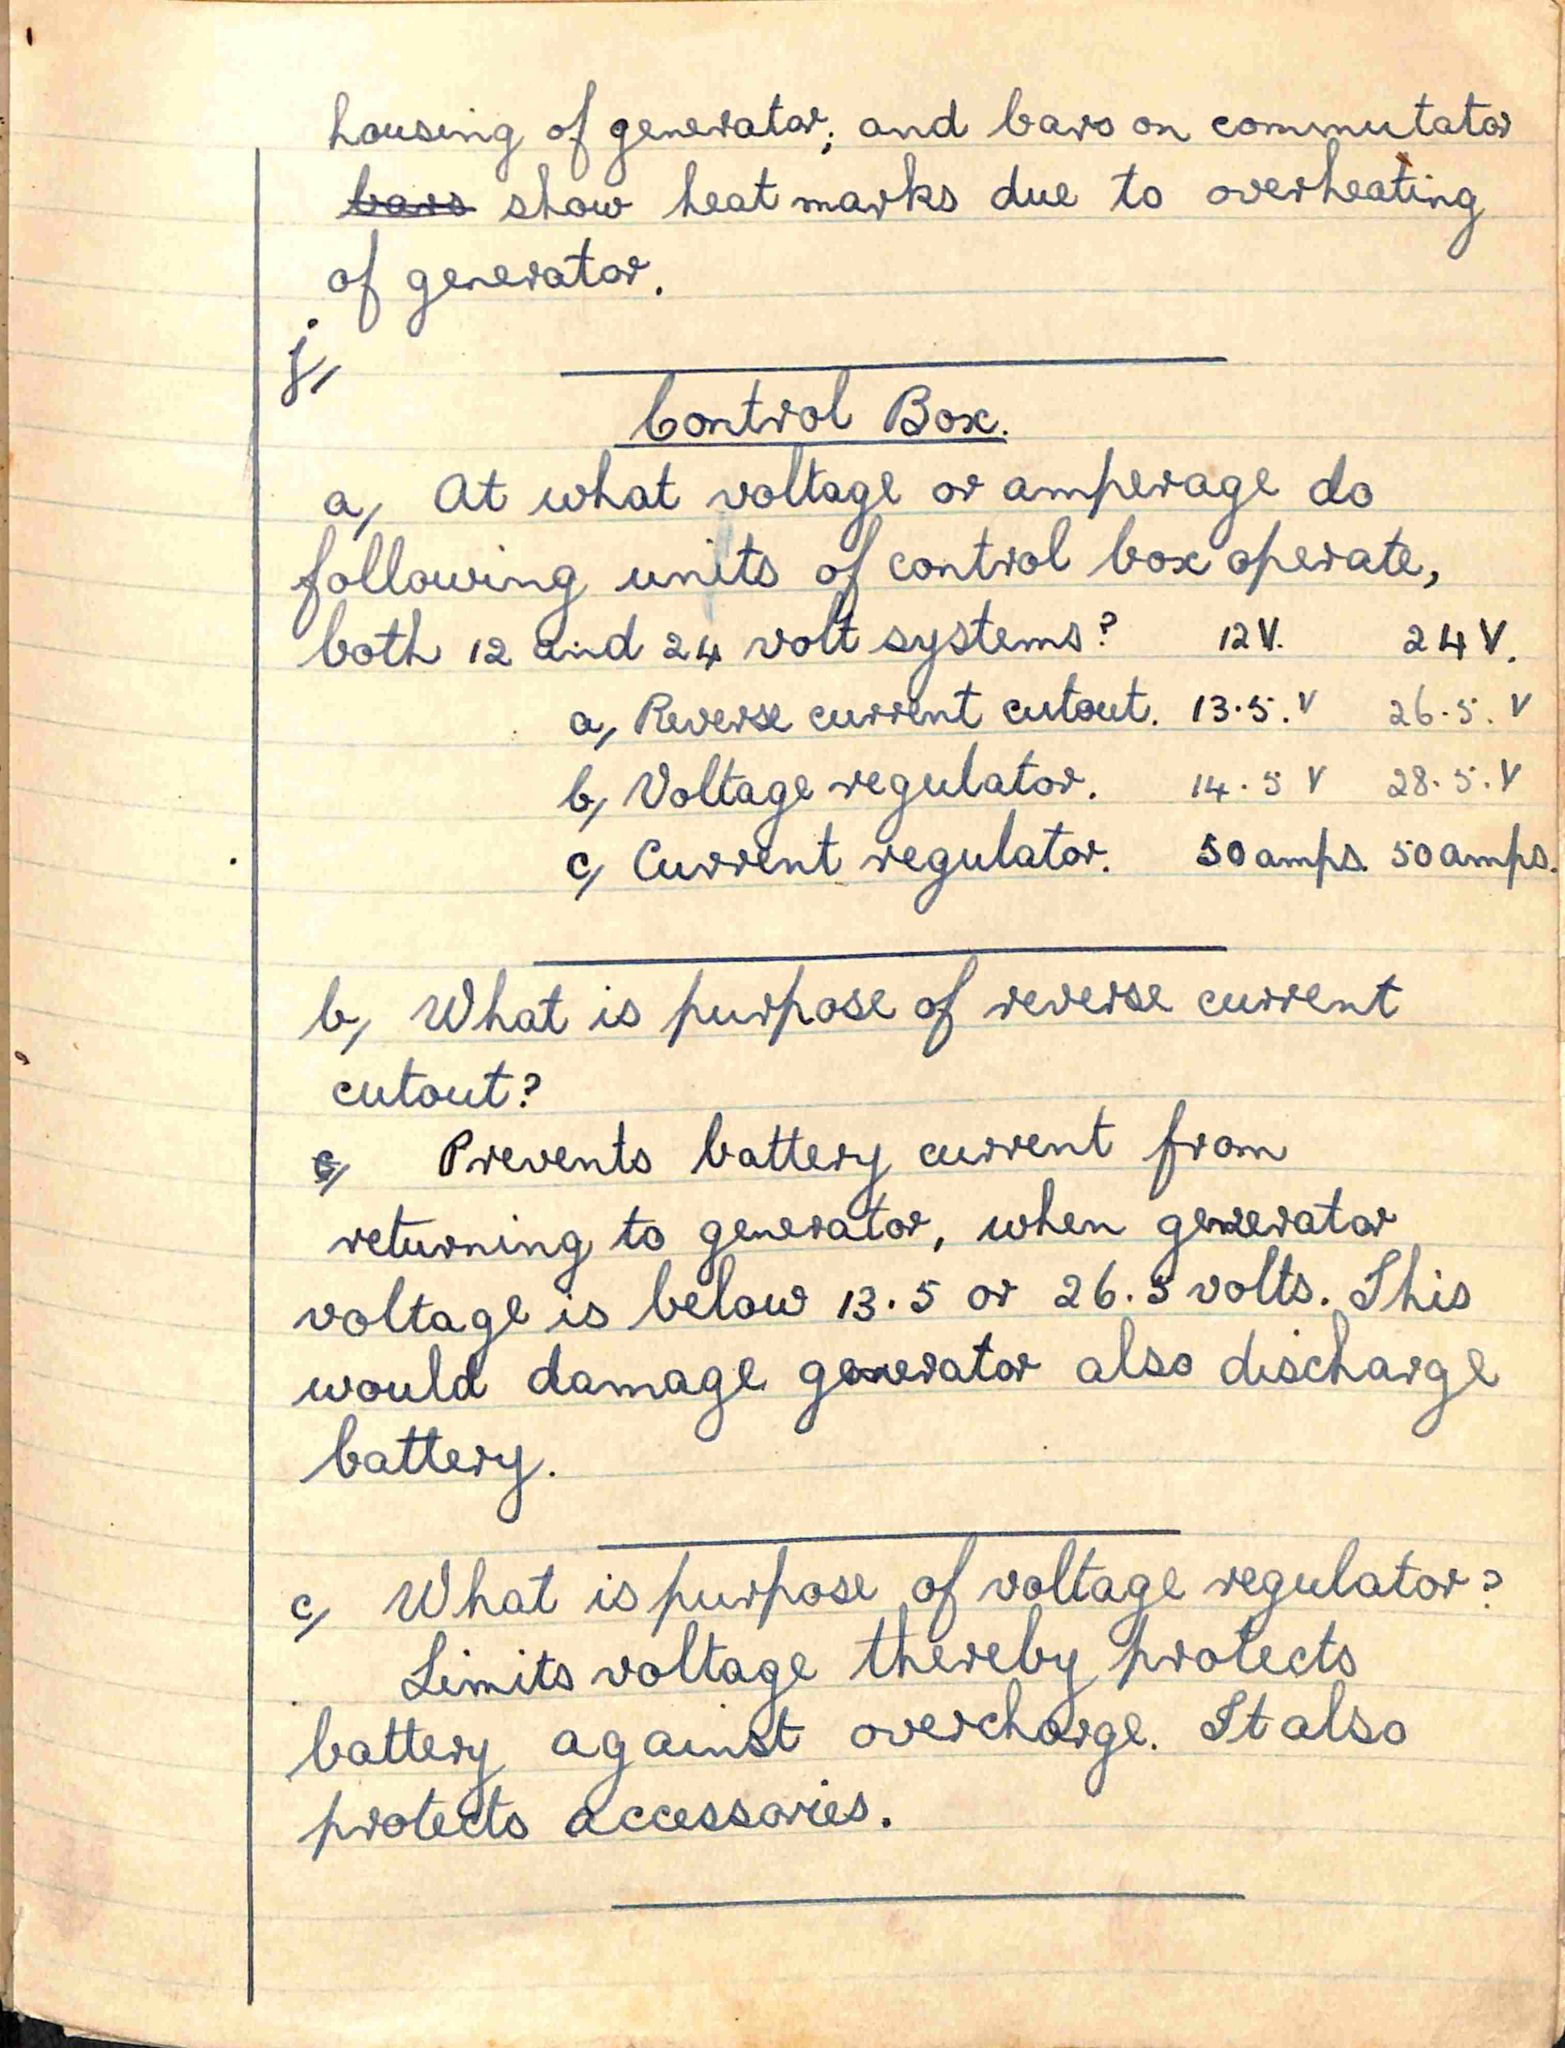 housing of generator; and bars on commutator
bars show heat marks due to overheating
of generator.
j,
Control Box.
a, At what voltage or amperage do
following units of control box operate,
both 12 and 24 volt systems? 12V. 24V.
a, Reverse current cutout. 13.5.V 26.5.V
b, Voltage regulator. 14.5 V 28.5.V
c, Current regulator. 50 amps. 50 amps.
b, What is purpose of reverse current
cutout?
c, Prevents battery current from
returning to generator, when generator
voltage is below 13.5 or 26.5 volts. This
would damage generator also discharge
battery.
c, What is purpose of voltage regulator?
Limits voltage thereby protects
battery against overcharge. It also
protects accessories.